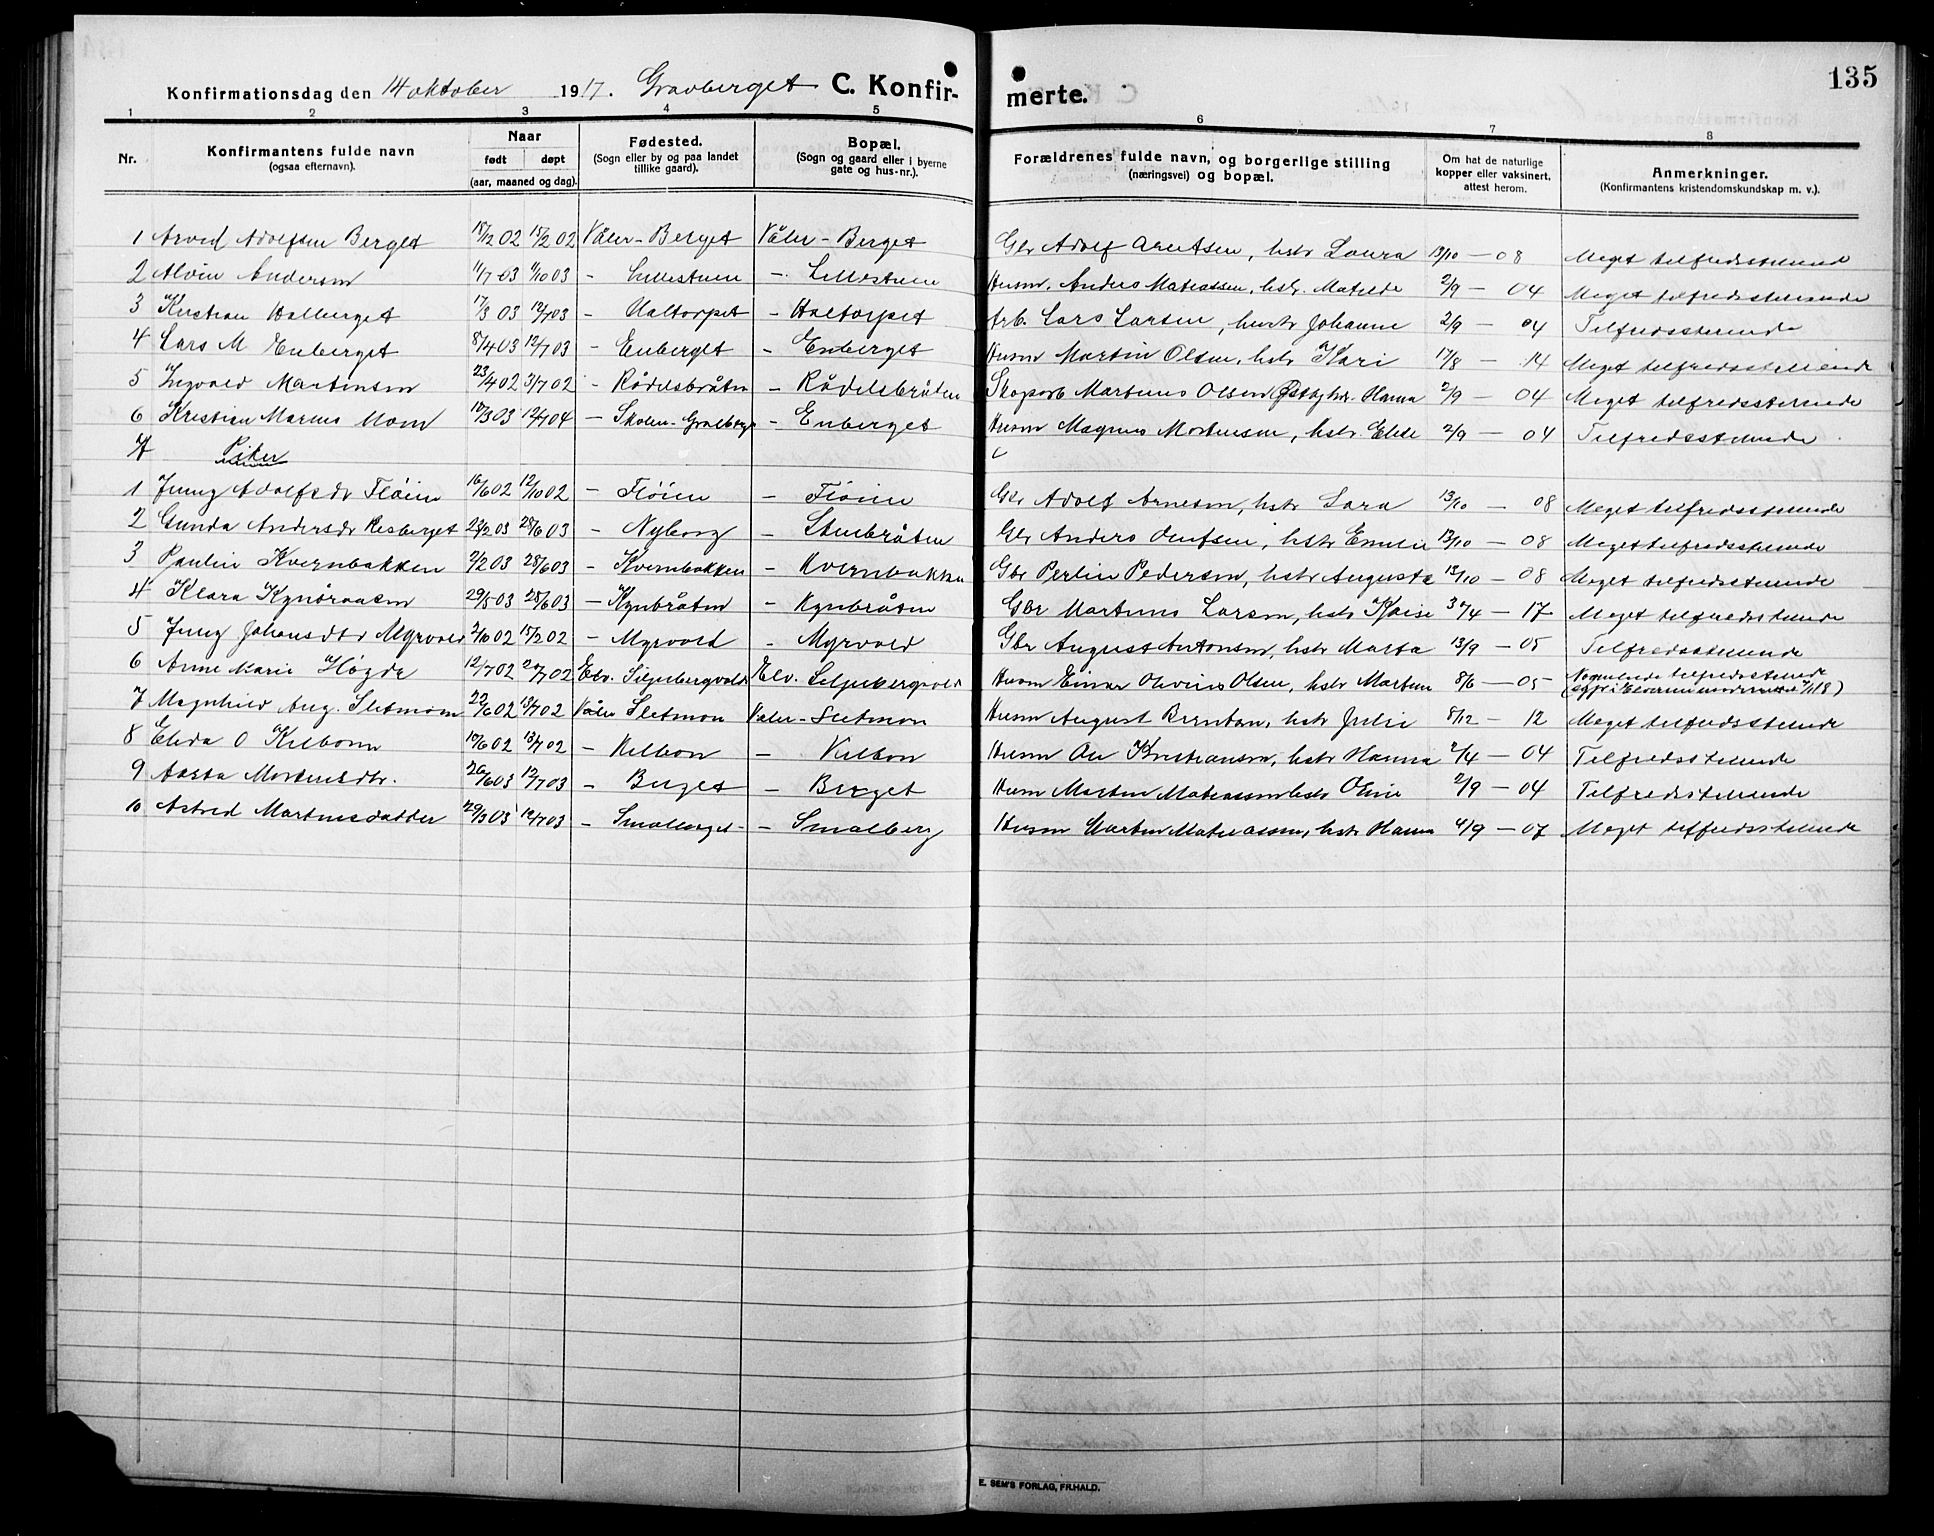 135
Konfirmationsdag den 14 oktober 1917. Gravberget C. Konfirmerte.
1 2 3 4 5 6 7 8
Nr. Konfirmantens fulde navn (ogsaa efternavn). Naar født døpt (aar, maaned og dag). Fødested. (Sogn eller by og paa landet tillike gaard). Bopæl. (Sogn og gaard eller i byerne gate og hus-nr.). Forældrenes fulde navn, og borgerlige stilling (næringsvei) og bopæl. Om hat de naturlige kopper eller vaksinert, attest herom. Anmerkninger. (Konfirmantens kristendomskundskap m. v.).
1 Arvid Adolfsen Berget 18/12 02 15/2 02 Våler - Berget Våler - Berget Gbr Adolf Arntsen, hstr Laura 13/10 - 08 Meget tilfredsstillende
2 Alvin Andersen 11/7 03 11/10 03 - Lillestuen - Lillestuen Husm. Anders Mateassen, hstr. Matilde 2/9 - 04 Meget tilfredsstillende
3 Kristian Halberget 17/3 03 12/7 03 - Haltorpet - Haltorpet Arb. Lars Larsen, hustr Johanne 2/9 - 04 Tilfredsstillende
4 Lars M Enberget 8/4 03 12/7 03 - Enberget - Enberget Husm Martin Olsen, hstr Kari 17/8 - 14 Meget tilfredsstillende
5 Ingvald Martinsen 23/4 02 3/7 02 - Rådelsbråten - Rådelsbråten Skogarb Martinus Olsen Østby hstr. Hanna 2/9 - 04 Meget tilfredsstillende
6 Kristian Marius Mom 18/3 03 12/7 04 - Skolen - Gravberget - Enberget Husm Magnus Mortensen, hstr. Elise 2/9 - 04 Tilfredsstillende
Piker
1 Jenny Adolfsdr Fløien 16/6 02 12/10 02 - Fløien - Fløien Gbr Adolf Arnesen, hstr Lara 13/10 - 08 Meget tilfredsstillende
2 Gunda Andersdr Risberget 23/2 03 28/6 03 - Nyborg - Stenbråten Gbr Anders Olufsen, hstr Emilie 13/10 - 08 Meget tilfredsstillende
3 Paulin Kvernbakken 2/2 03 28/6 03 - Kvernbakken - Kvernbakken Gbr Perlin Pedersen, hstr Augusta 13/10 - 08 Meget tilfredsstillende
4 Klara Kynbraaten 29/5 03 28/6 03 - Kynbråten - Kynbråten Gbr Martinus Larsen, hstr Kaise 30/4 - 17 Meget tilfredsstillende
5 Jenny Johansdtr Myrvold 2/10 02 15/2 02 - Myrvold - Myrvold Gbr August Antonsen, hstr Marta 13/9 - 05 Tilfredsstillende
6 Anne Marie Høgda 12/7 02 20/7 02 Elv. Siljubergvold Elv. Siljubergvold Husm Einar Olivius Olsen, hstr Martine 8/6 - 05 Nogenlunde tilfredsstillende
7 Magnhild Aug. Sletmoen 22/6 02 13/7 02 Våler Sletmon Våler - Sletmon Husm August Berntsen, hstr Julie 8/12 - 12 Meget tilfredsstillende
8 Elida O Kilbonn 10/6 02 13/7 02 - Kilbon - Kilbon Husm Ole Kristiansen, hstr Hanna 2/4 - 04 Tilfredsstillende
9 Aasta Mortensdtr. 20/6 03 12/7 03 - Berget - Berget Husm Martin Mateassen hstr Oline 2/9 - 04 Tilfredsstillende
10 Astrid Martinsdatter 29/3 03 12/7 03 - Smalberget - Smalberg Husm Martin Mateassen, hstr Hanna 4/9 - 07 Meget tilfredsstillende
E. SEM'S FORLAG, FR.HALD.